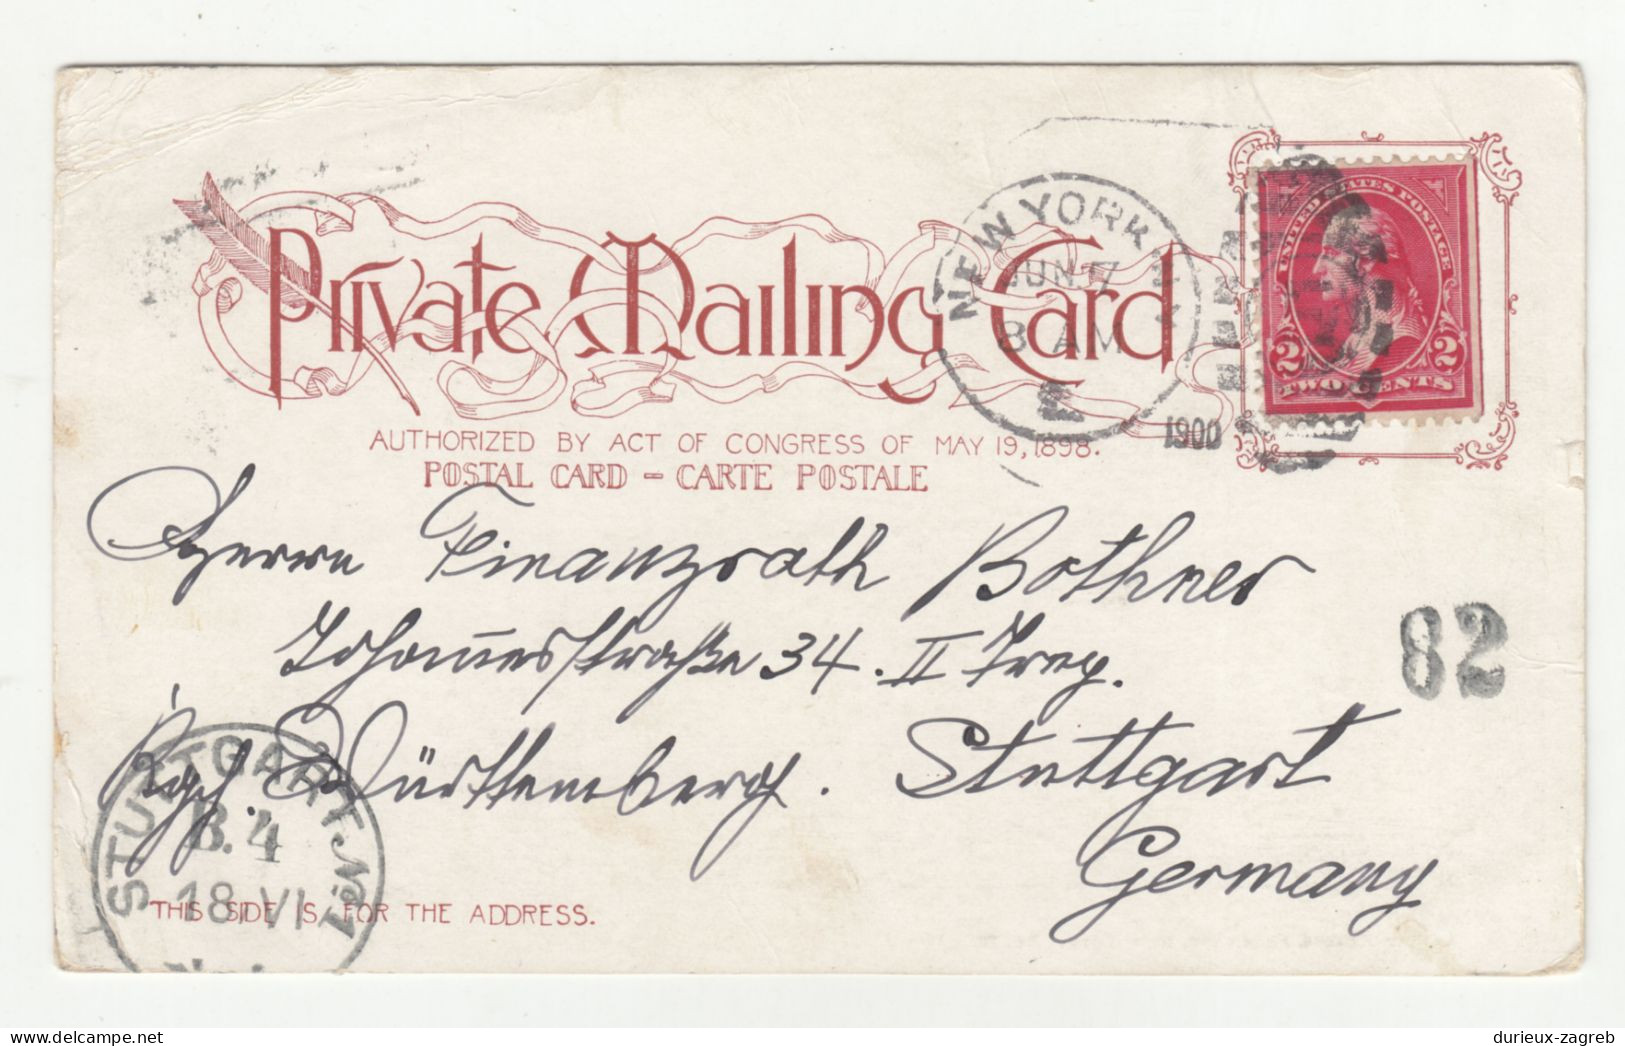 Private Mailing Card
AUTHORIZED BY ACT OF CONGRESS OF MAY 19, 1898.
POSTAL CARD – CARTE POSTALE
NEW YORK N.Y.
JUN 7
8 AM
1900
UNITED STATES POSTAGE
2 2
TWO CENTS
Herrn Finanzrath Bothner
Johannesstraße 34. II Trep.
82
Kgch. Württemberg. Stuttgart
Germany
STUTTGART. No 1
B. 4
18 VI
THIS SIDE IS FOR THE ADDRESS.
www.delcampe.net
durieux-zagreb